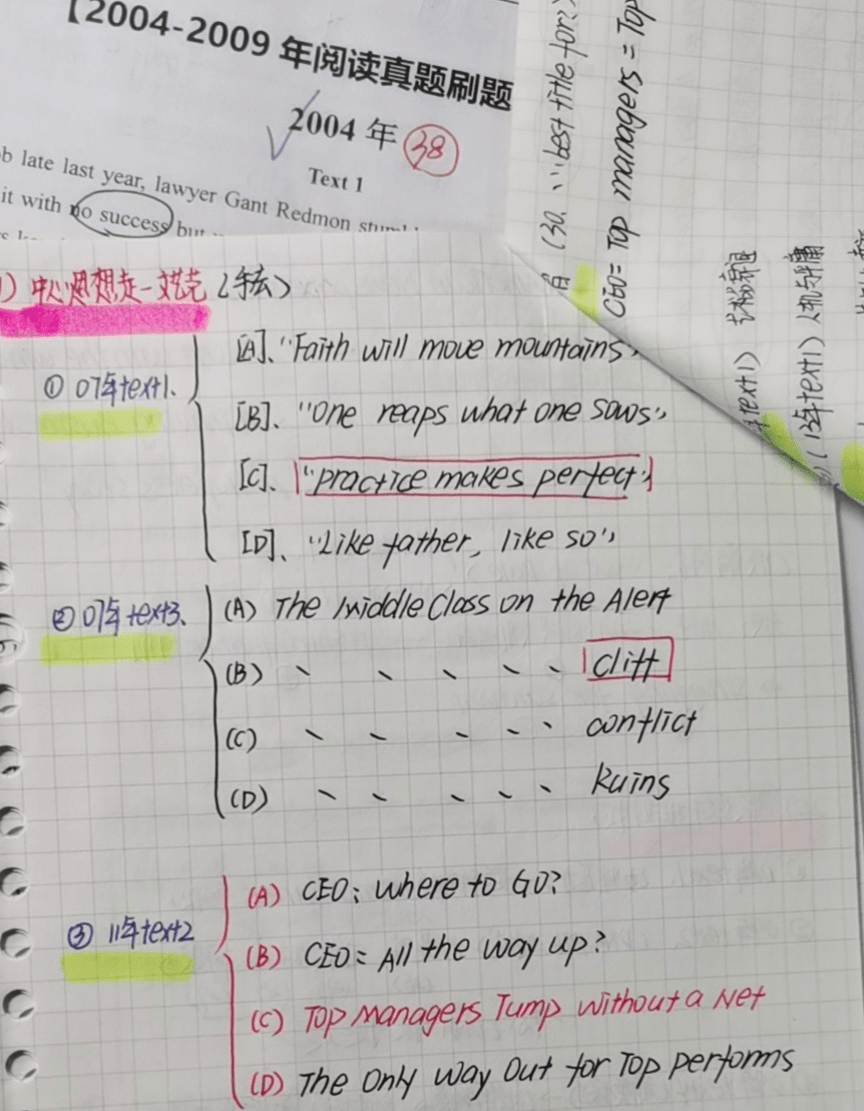 【2004-2009 年阅读真题刷题
2004 年 38
Text 1
b late last year, lawyer Gant Redmon
it with no success but
(30. best title for?)
CEO = Top managers = Top
) 中心思想走一文艺范
① 07年text1、
[A]、"Faith will move mountains"
[B]、"One reaps what one sows"
[C]、"practice makes perfect"
[D]、"Like father, like so"
② 07年text3、
(A) The Middle Class on the Alert
(B) 、 、 、 、 、 Cliff
(C) 、 、 、 、 、 conflict
(D) 、 、 、 、 、 Ruins
③ 11年text2
(A) CEO: where to GO?
(B) CEO = All the way up?
(C) Top Managers Jump Without a Net
(D) The Only Way Out for Top performs
年text1)
(13年text1)